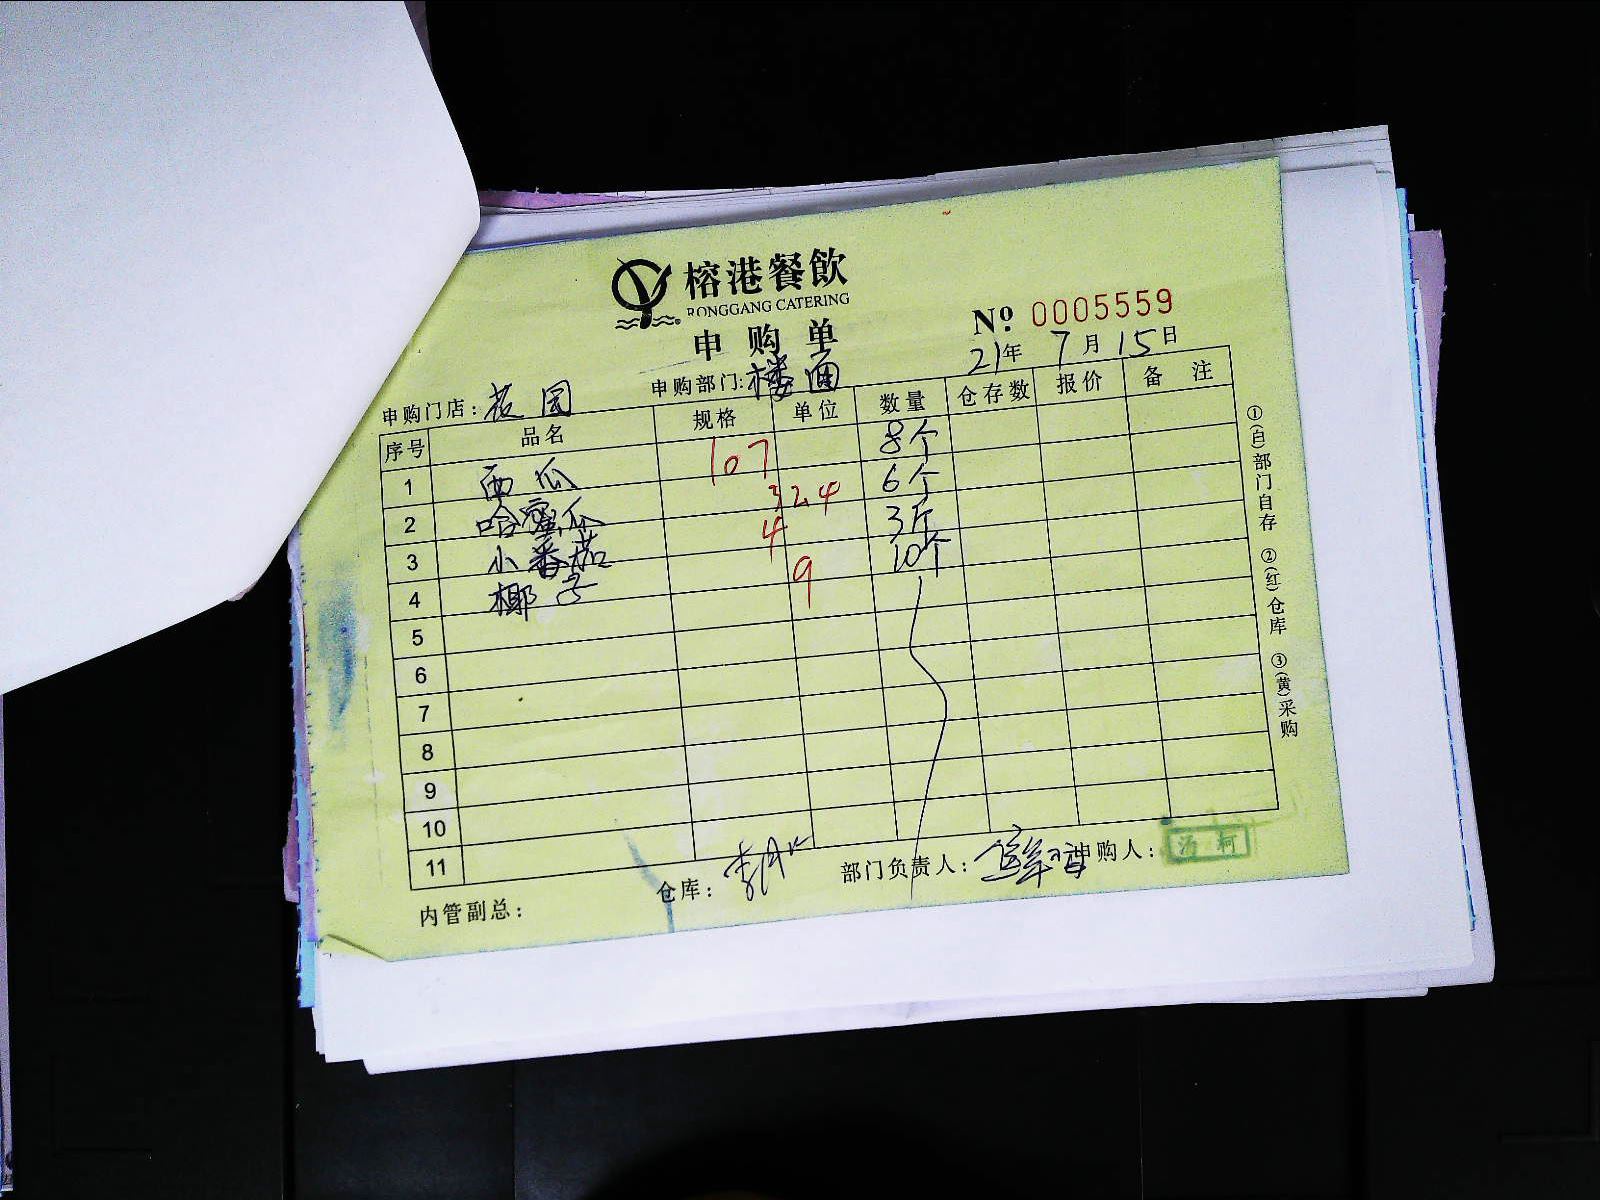 榕港餐飲
RONGGANG CATERING
申购单
№ 0005559
21年 7月 15日
申购门店：花园 申购部门：楼面
序号 品名 规格 单位 数量 仓存数 报价 备注
1 西瓜 107 8个
2 哈蜜瓜 32.4 6个
3 小番茄 4 3斤
4 椰子 9 10个
5
6
7
8
9
10
11
内管副总： 仓库： 部门负责人： 申购人：
①(白)部门自存 ②(红)仓库 ③(黄)采购